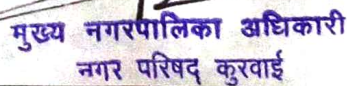 मुख्य नगरपालिका अधिकारी
नगर परिषद् कुरवाई